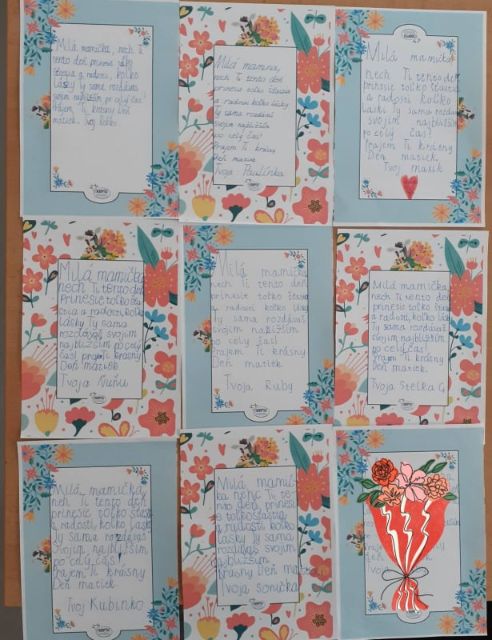 Milá mamička, nech Ti
tento deň prinesie toľko
šťastia a radosti, koľko
lásky ty sama rozdávaš
svojim najbližším po celý čas!
Prajem Ti krásny Deň
matiek. Tvoj
Milá mamina,
nech Ti tento deň
prinesie toľko šťastia
a radosti koľko lásky
Ty sama rozdávaš
svojim najbližšie
po celý čas!
Prajem Ti krásny
Deň matiek
Tvoja Paulínka
Milá mamička
nech Ti tento deň
prinesie toľko šťastia
a radosti koľko
lásky ty sama rozdávaš
svojim najbližším
po celý čas!
Prajem Ti krásny
Deň matiek
Tvoj
Milá mamička
nech Ti tento deň
prinesie toľko šťa
stia a radosti, koľko
lásky Ty sama
rozdávaš svojim
najbližším po celý
čas! prajem Ti krásny
Deň matiek
Tvoja
Milá mamička
nech Ti tento deň
prinesie toľko šťastia
a radosti, koľko lásky
ty sama rozdávaš
svojim najbližším
po celý čas!
Prajem Ti krásny
Deň matiek.
Tvoja Ruby
Milá mamička,
nech Ti tento deň
prinesie toľko šťastia
a radosti, koľko lásky
Ty sama rozdávaš
svojim najbližším
po celý čas!
Prajem Ti krásny
Deň matiek
Tvoja Stelka G
Milá mamička
nech Ti tento deň
prinesie toľko šťastia
a radosti koľko lásky
Ty sama rozdávaš
svojim najbližším
po celý čas!
Prajem Ti krásny
Deň matiek
Tvoj Kubinko
Milá mami
ka nech Ti te
nto deň prines
ie toľko šťastia
a radosti koľko
lásky Ty sama
rozdávaš svojim
najbližším
krásny Deň matiek
Tvoja sonička